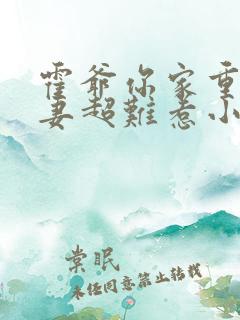 霍爺你家重
妻超難惹小
棠眠
未经同意禁止转载